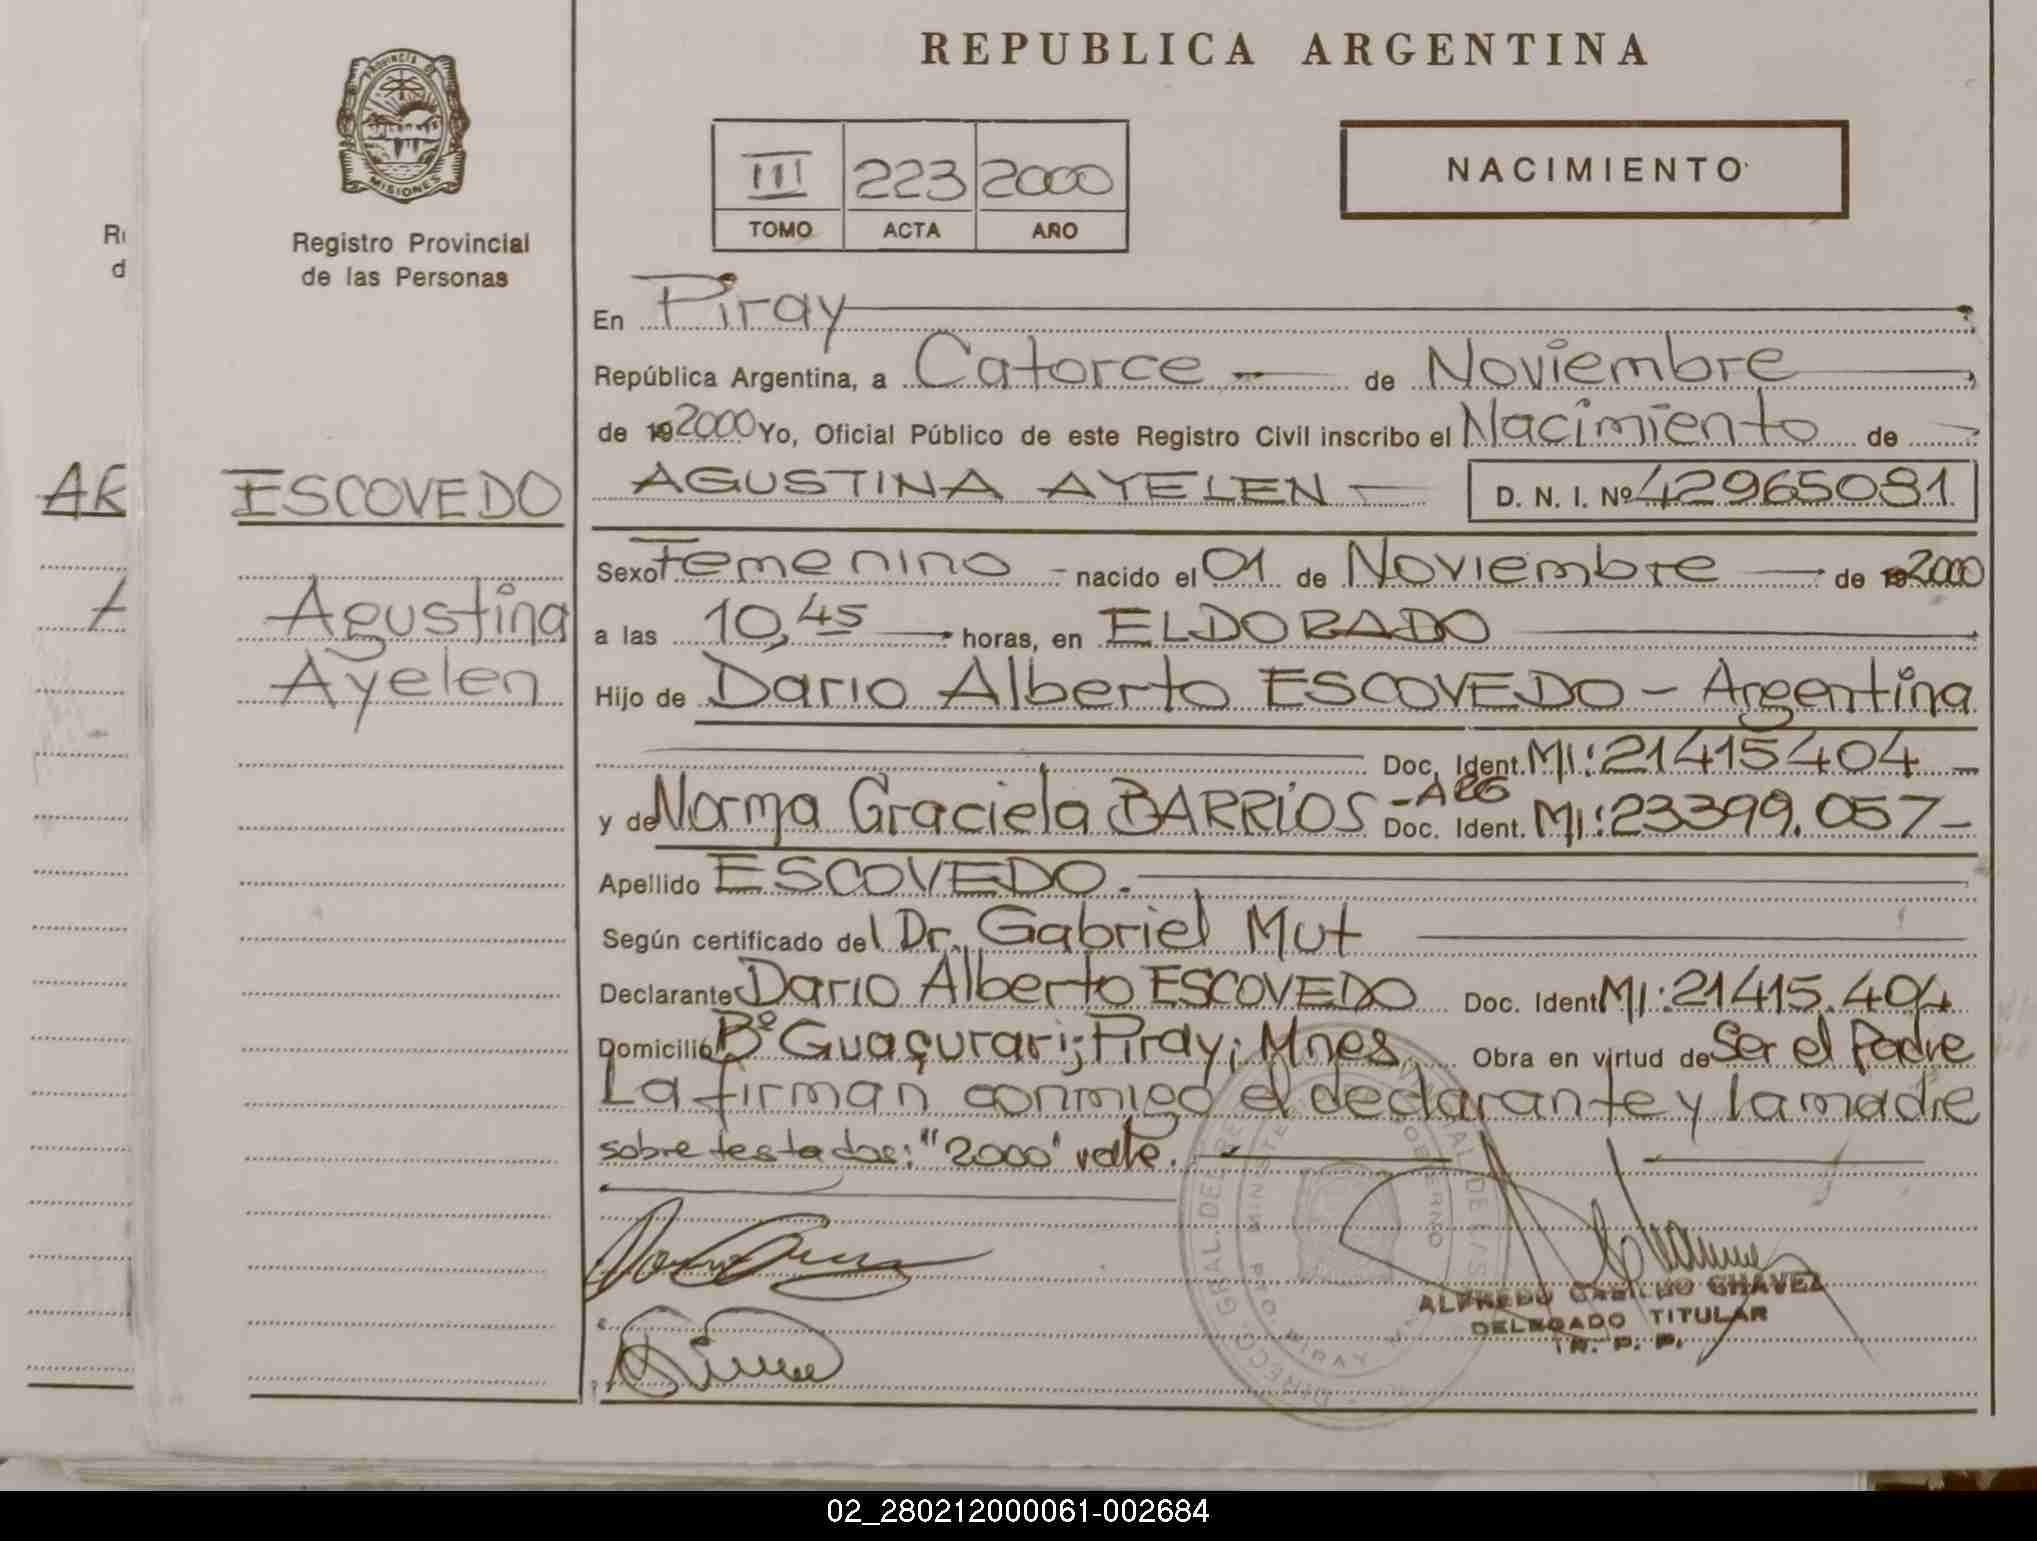 REPUBLICA ARGENTINA
PROVINCIA DE
MISIONES
Registro Provincial
de las Personas
III 223 2000
TOMO ACTA AÑO
NACIMIENTO
En Piray
República Argentina, a Catorce de Noviembre
de 19 2000 Yo, Oficial Público de este Registro Civil inscribo el Nacimiento de
AGUSTINA AYELEN D. N. I. Nº 42965081
Sexo Femenino nacido el 01 de Noviembre de 19 2000
a las 10,45 horas, en ELDORADO
Hijo de Dario Alberto ESCOVEDO - Argentina
Doc. Ident. MI: 21415404
y de Norma Graciela BARRIOS - ARG Doc. Ident. MI: 23399.057-
Apellido ESCOVEDO.
Según certificado del Dr. Gabriel Mut
Declarante Dario Alberto ESCOVEDO Doc. Ident MI: 21415.404
Domicilio Bº Guaçurari; Piray; Mnes Obra en virtud de Ser el Padre
La firman conmigo el declarante y la madre
sobre testados: "2000" valte.
ESCOVEDO
Agustina
Ayelen
ALFREDO CHAVEZ
DELEGADO TITULAR
R. P. P.
02_280212000061-002684